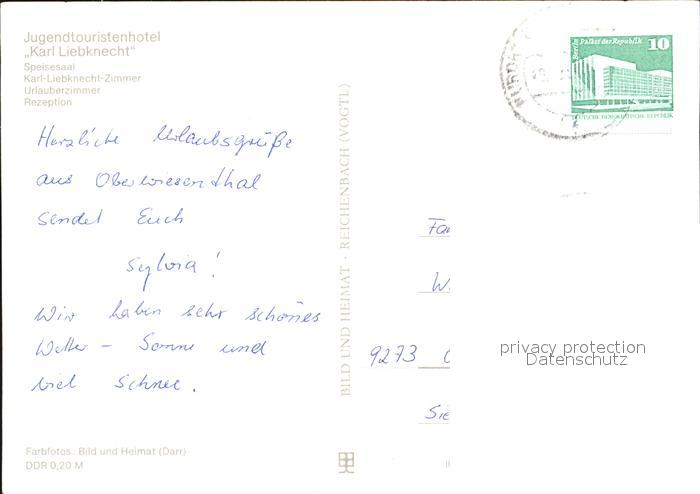 Jugendtouristenhotel
„Karl Liebknecht“
Speisesaal
Karl-Liebknecht-Zimmer
Urlauberzimmer
Rezeption
Herzliche Urlaubsgrüße
aus Oberwiesenthal
sendet Euch
Sylvia!
Wir haben sehr schönes
Wetter – Sonne und
viel Schnee.
Farbfotos: Bild und Heimat (Darr)
DDR 0,20 M
BILD UND HEIMAT · REICHENBACH (VOGTL)
Berlin Palast der Republik 10
DEUTSCHE DEMOKRATISCHE REPUBLIK
Fa
W
9273
Sie
privacy protection
Datenschutz